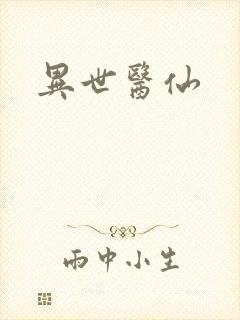 異世醫仙
雨中小生